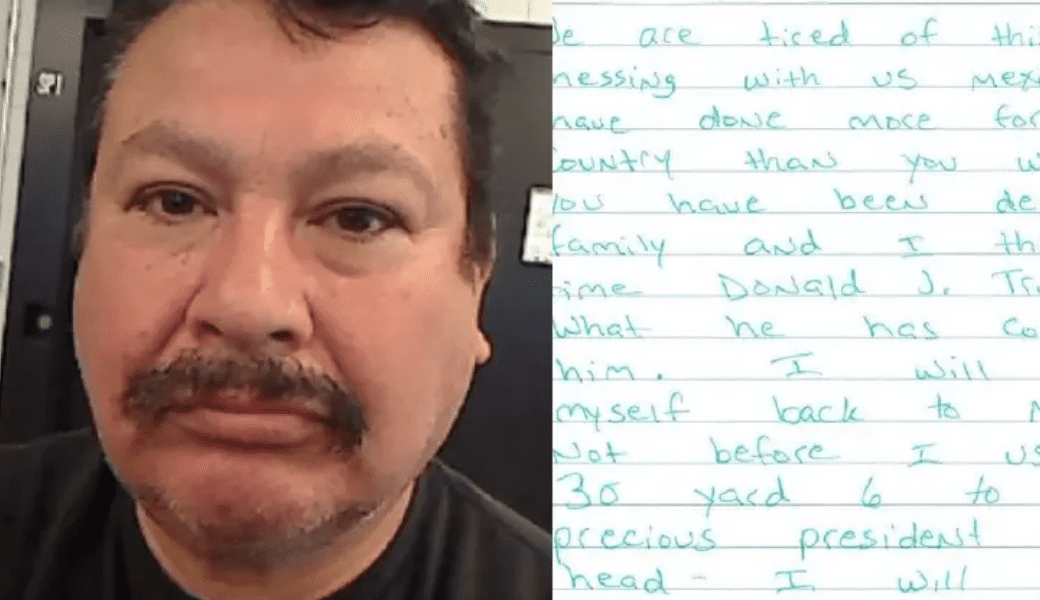 SPI
e are tired of thi
messing with us mex
have done more for
ountry than you w
ou have been de
family and I th
ime Donald J. Tr
what he has co
him. I will
myself back to
Not before I us
30 yard 6 to
precious president
head - I will